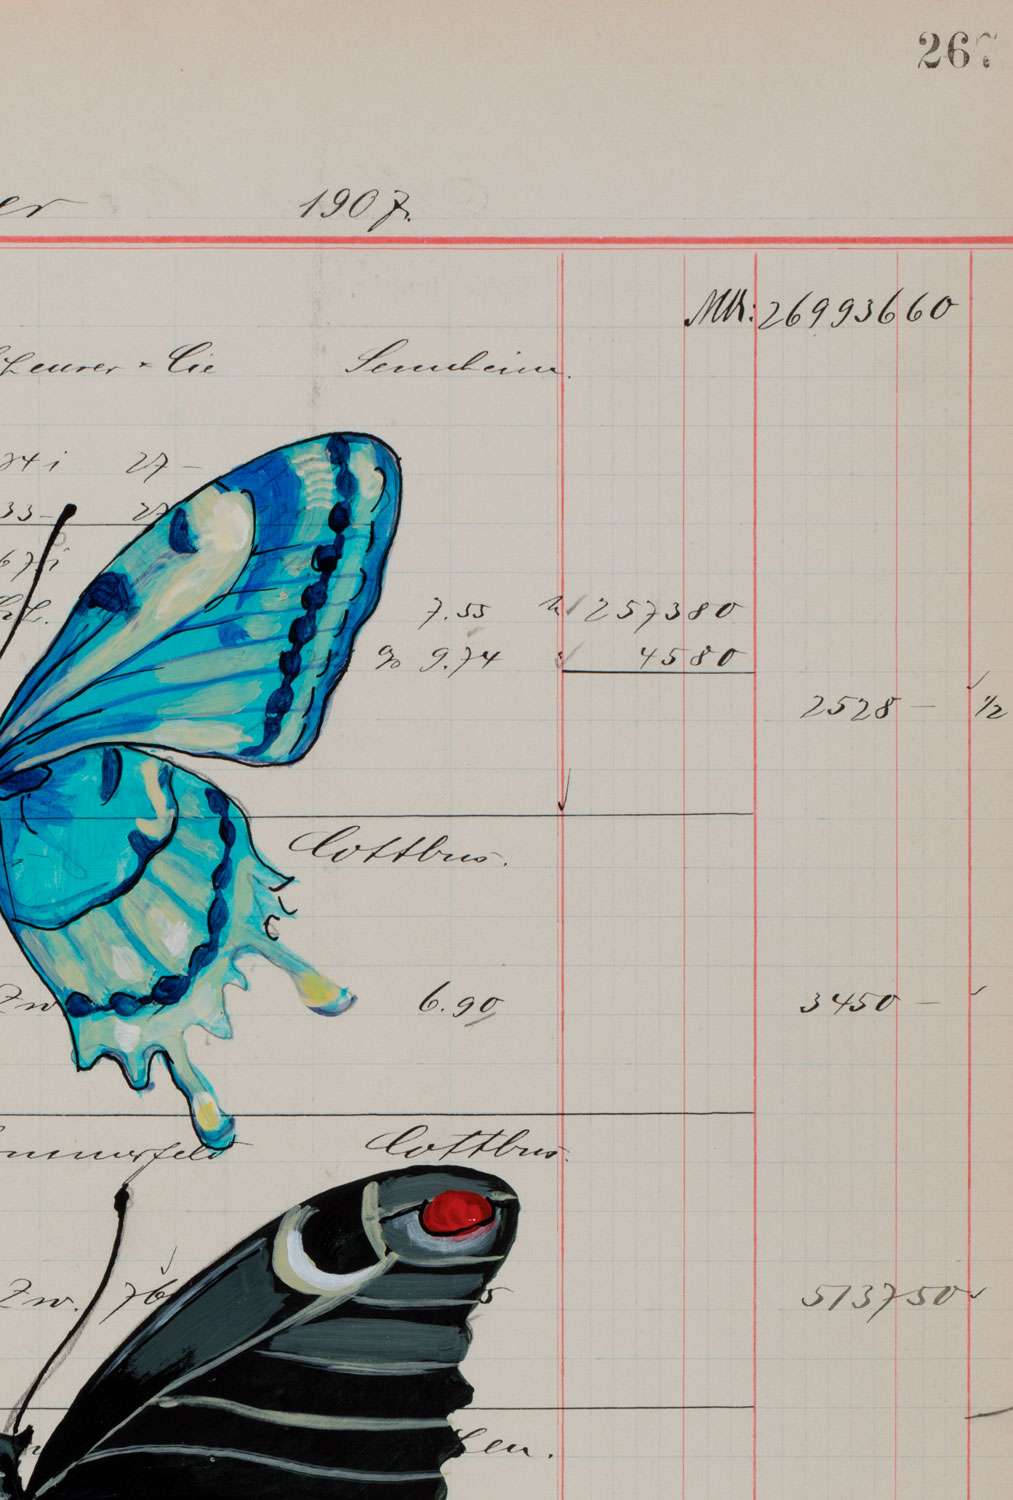 267
er 1907.
Mk: 26993660
Scheurer & Cie Sennheim.
74 i 27 —
33 — 27
67 i
7.55 257380
% 9.74 4580
2528 — 1/2
Cottbus.
Zw 6.90 3450 —
ommerfeld Cottbus.
Zw. 76 5 513750
en.